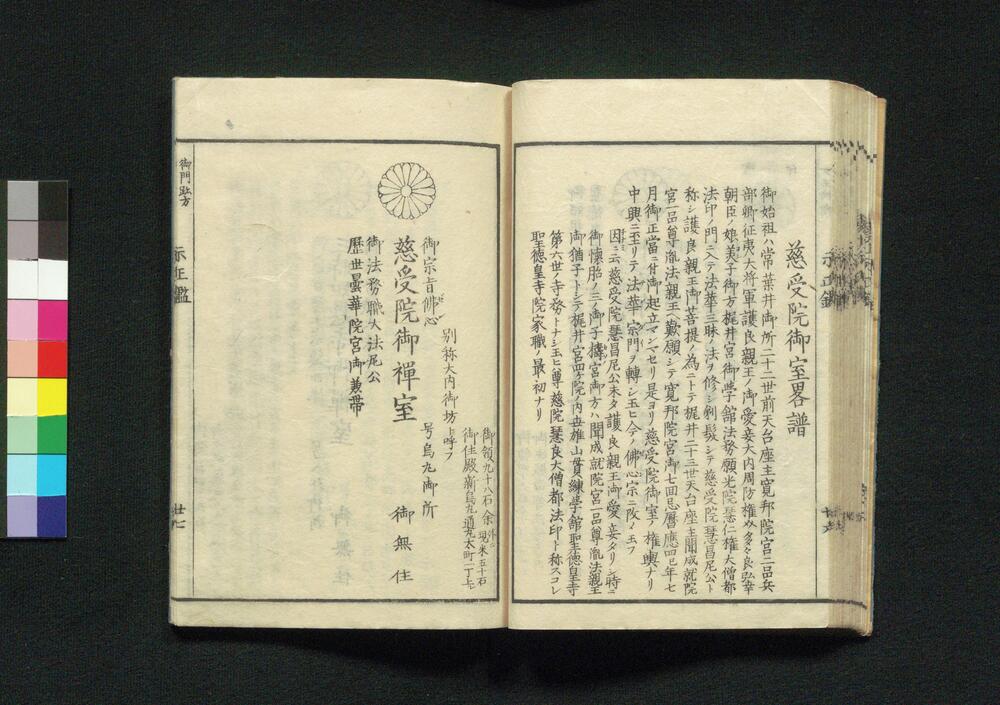 慈受院御室畧譜
御始祖ハ常葉井御所二十二世前天台座主寛邦院宮二品兵
部卿征夷大将軍護良親王ノ御愛妾大内周防権 多々良弘幸
朝臣ノ娘美子御方梶井宮御学舘法務願光院慧仁権大僧都
法印ノ門ニ入テ法華三昧ノ法ヲ修シ剃髪シテ慈受院慧昌尼公ト
称シ護良親王御菩提ノ為ニトテ梶井二十三世天台座主聞成就院
宮一品尊胤法親王ヘ歎願シテ寛邦院宮御七回忌暦應四巳年七
月御正當ニ付御起立マシマセリ是ヨリ慈受院御室ノ権輿ナリ
中興ニ至リテ法華宗門ヲ轉シ玉ヒ今ノ佛心宗ニ改メ玉フ
因ニ云慈受院慧昌尼公未タ護良親王御愛妾タリシ時ニ
御懐胎ノ三ノ御子 宮御方ハ聞成就院宮一品尊胤法親王
御猶子トシテ梶井宮四ケ院ノ内 雄山貫練学舘聖徳皇寺
第六世ノ寺務トナシ玉ヒ尊慈院慧良大僧都法印ト称スコレ
聖徳皇寺院家職ノ最初ナリ
御領九十八石余外ニ現米五十石
御住殿新烏丸通丸太町二丁上ル
別称大内御坊ト呼フ
号烏丸御所
御宗旨佛心
慈受院御禪室
御無住
御法務職大法尼公
歴世曇華院宮御兼帯
御門跡方
示正鑑
廿七